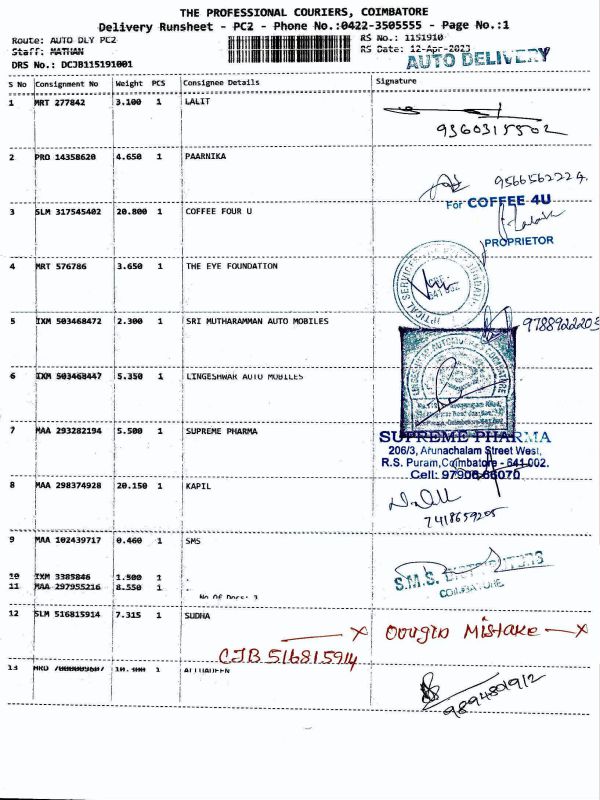 THE PROFESSIONAL COURIERS, COIMBATORE
Delivery Runsheet - PC2 - Phone No.:0422-3505555 - Page No.:1
Route: AUTO DLY PC2
RS No.: 1151910
Staff: MATHAN
RS Date: 12-Apr-2023
DRS No.: DCJB115191001
AUTO DELIVERY
S No Consignment No Weight PCS Consignee Details Signature
1 MRT 277842 3.100 1 LALIT
2 PRO 14358620 4.650 1 PAARNIKA
9566562224.
For COFFEE 4U
3 SLM 317545402 20.800 1 COFFEE FOUR U
PROPRIETOR
4 MRT 576786 3.650 1 THE EYE FOUNDATION
5 IXM 503468472 2.300 1 SRI MUTHARAMMAN AUTO MOBILES
9788922205
6 IXM 503468447 5.350 1 LINGESHWAR AUTO MOBILES
7 MAA 293282194 5.500 1 SUPREME PHARMA
SUPREME PHARMA
206/3, Arunachalam Street West,
R.S. Puram, Coimbatore - 641 002.
Cell: 97906 66070
8 MAA 298374928 20.150 1 KAPIL
7418659205
9 MAA 102439717 0.460 1 SMS
S.M.S. DISTRIBUTORS
COIMBATORE
10 IXM 3385846 1.500 1 .
11 MAA 297955216 8.550 1 .
No Of Docs: 3
12 SLM 516815914 7.315 1 SUDHA
x Mistake x
CJB 516815914
13 1
9894801912